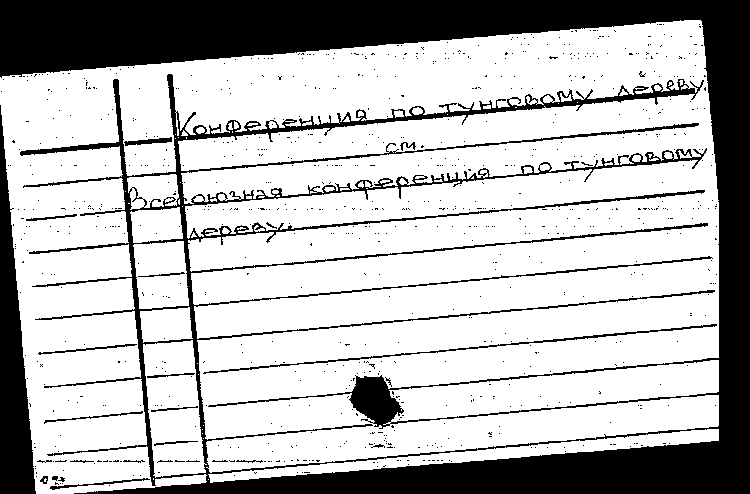 Конференция по тунговому дереву
см.
Всесоюзная конференция по тунговому
дереву.